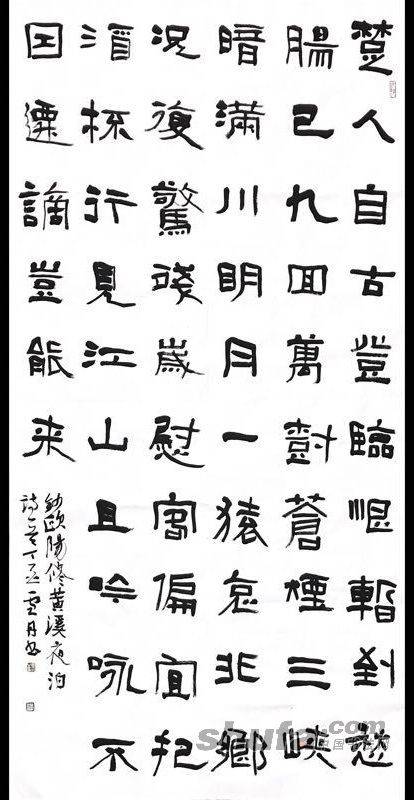 楚人自古登臨恨暫到愁
腸已九回萬樹蒼煙三峽
暗滿川明月一猿哀非鄉
況復驚殘歲慰寓偏宜把
酒杯行見江山且吟詠不
因遷謫豈能来
歐陽修黃溪夜泊
詩一首丁
shufa.com